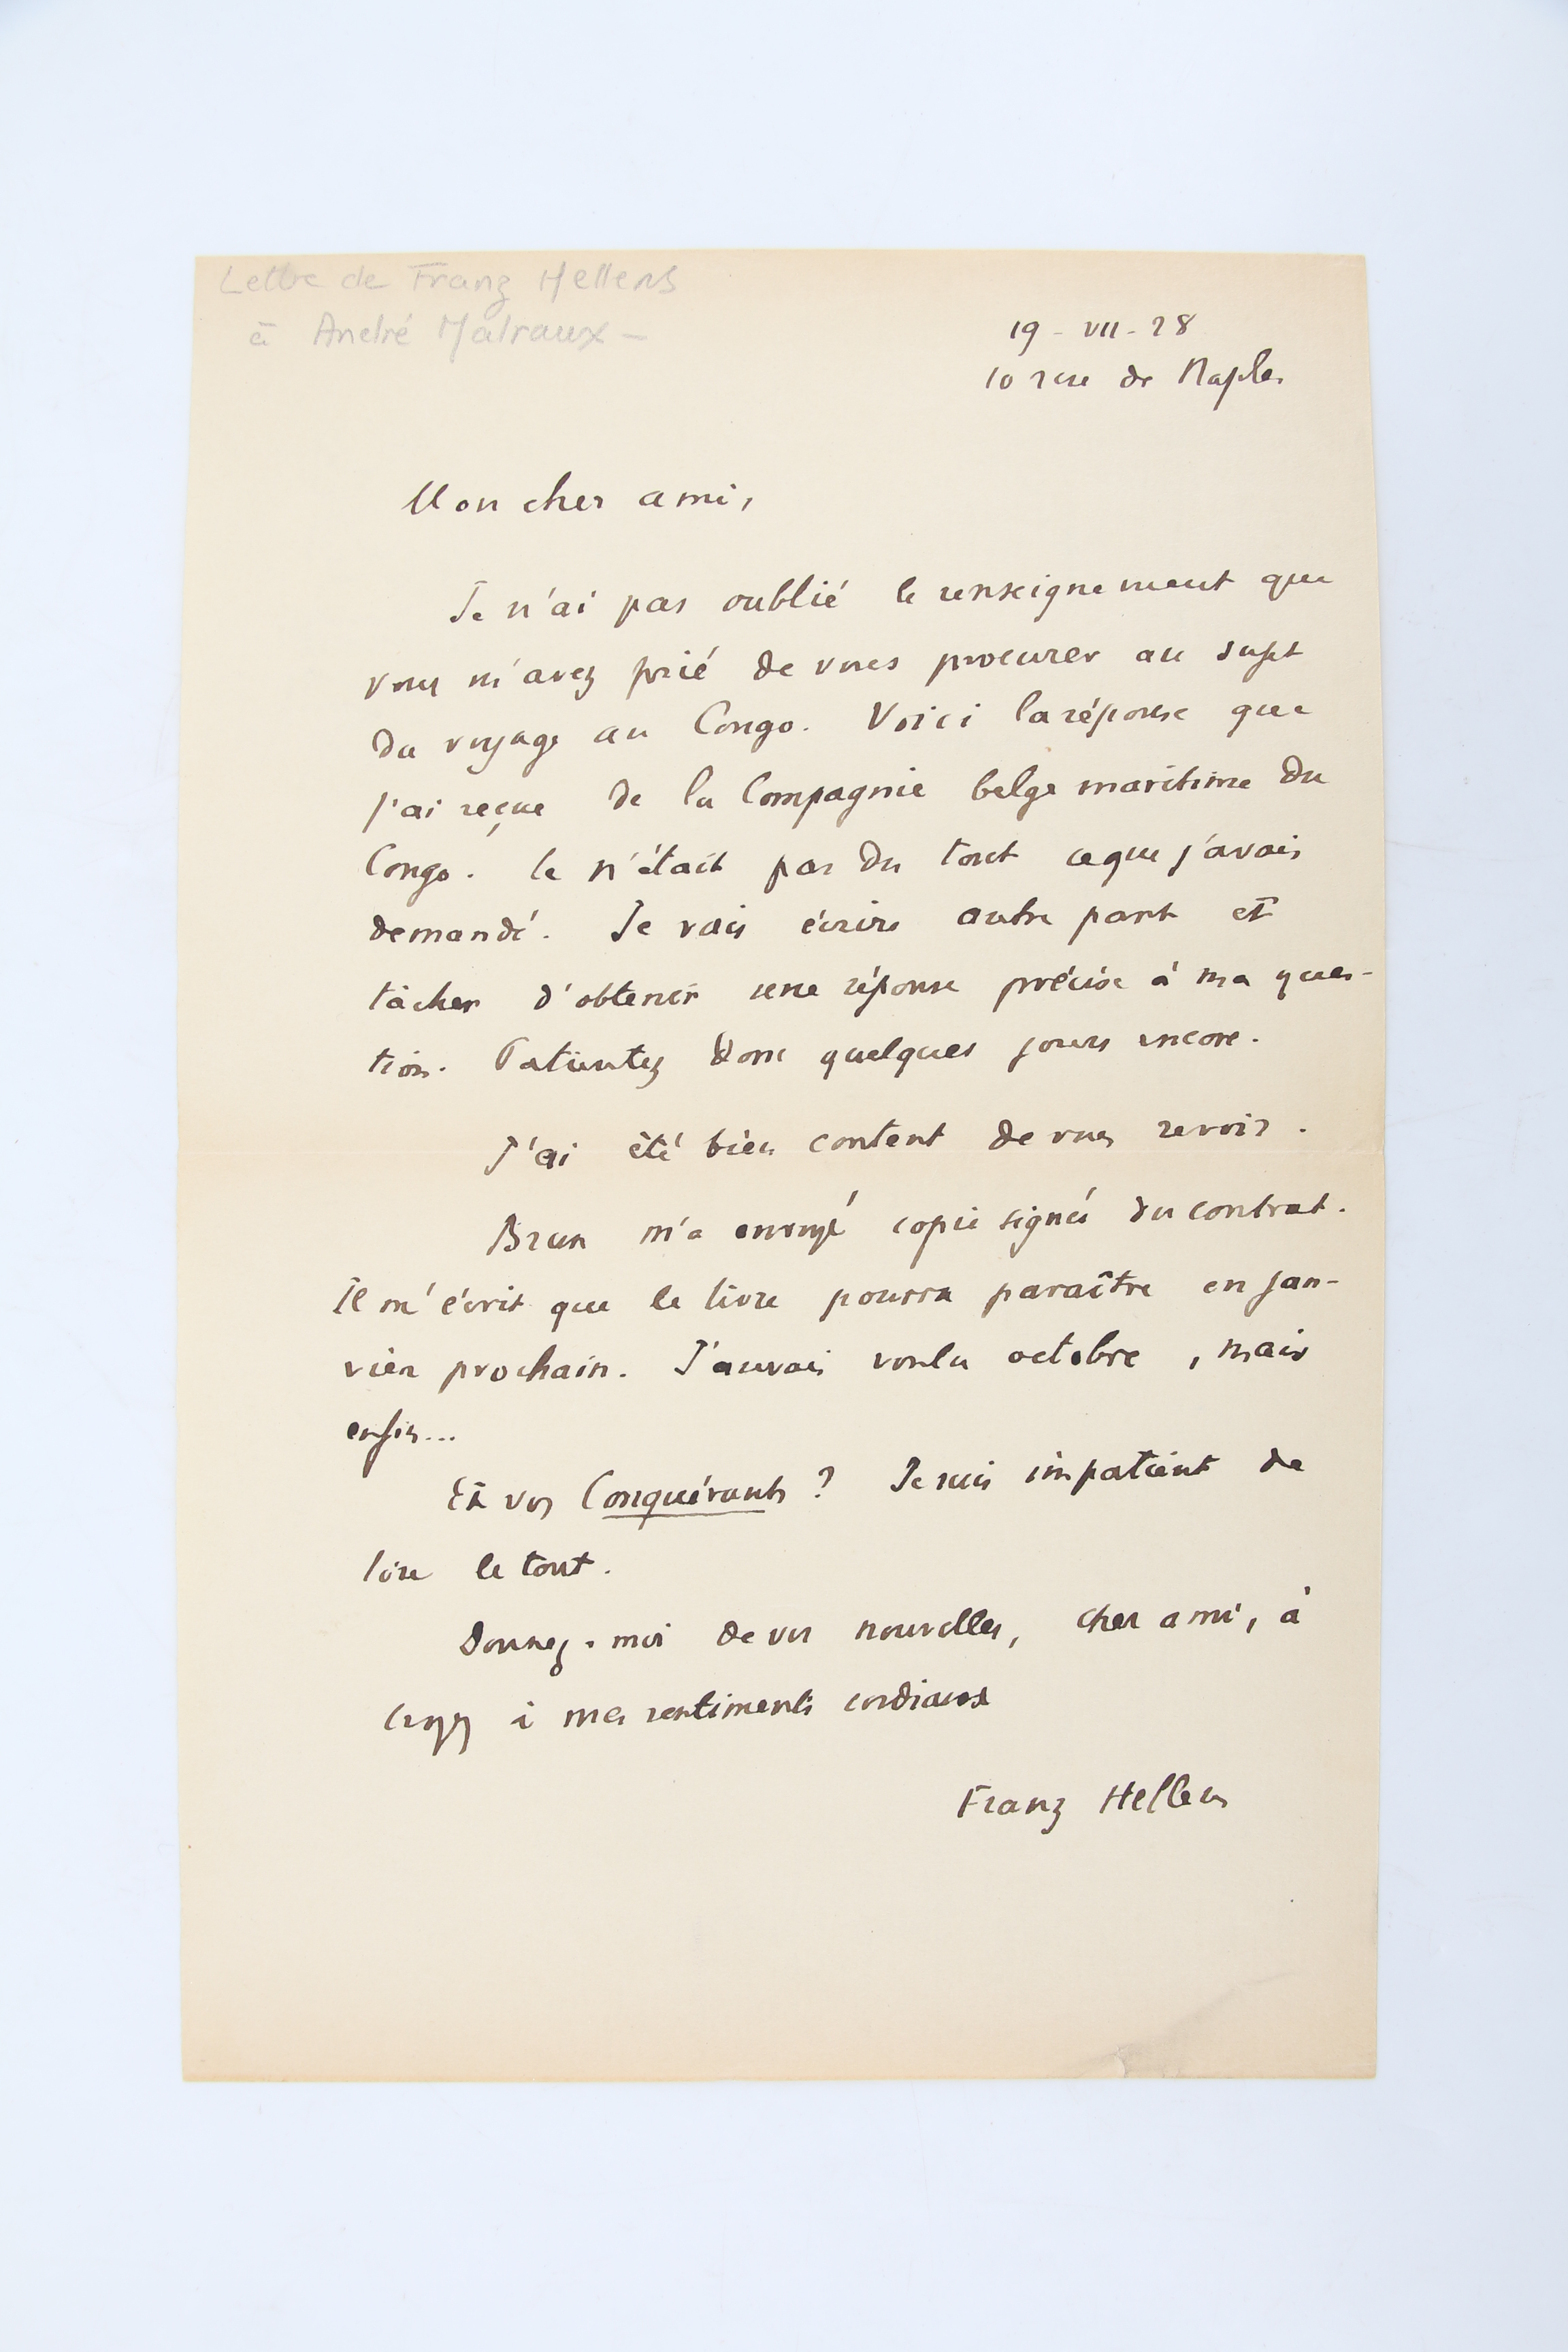 Lettre de Franz Hellens
à André Malraux -
19 - VII - 28
10 rue de Naples
Mon cher ami,
Je n'ai pas oublié le renseignement que
vous m'avez prié de vous procurer au sujet
du voyage au Congo. Voici la réponse que
j'ai reçue de la Compagnie belge maritime du
Congo. Ce n'était pas du tout ce que j'avais
demandé. Je vais écrire autre part et
tâcher d'obtenir une réponse précise à ma ques-
tion. Patientez donc quelques jours encore.
J'ai été bien content de vous revoir.
Brun m'a envoyé copie signée du contrat.
Il m'écrit que le livre pourra paraître en jan-
vier prochain. J'aurais voulu octobre, mais
enfin...
Et vos Conquérants ? Je suis impatient de
lire le tout.
Donnez-moi de vos nouvelles, cher ami, à
croyez à mes sentiments cordiaux
Franz Hellens